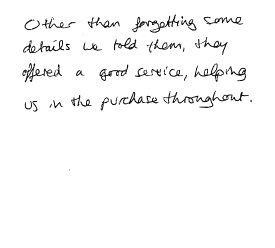 Other than forgetting some
details we told them, they
offered a good service, helping
us in the purchase throughout.